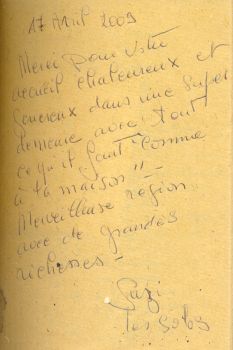 17 Avril 2009
Merci pour Votre
accueil chaleureux et
genereux dans une super
demeure avec tout
ce qu'il faut "comme
à la maison"!!
Merveilleuse région
avec de grandes
richesses -
les